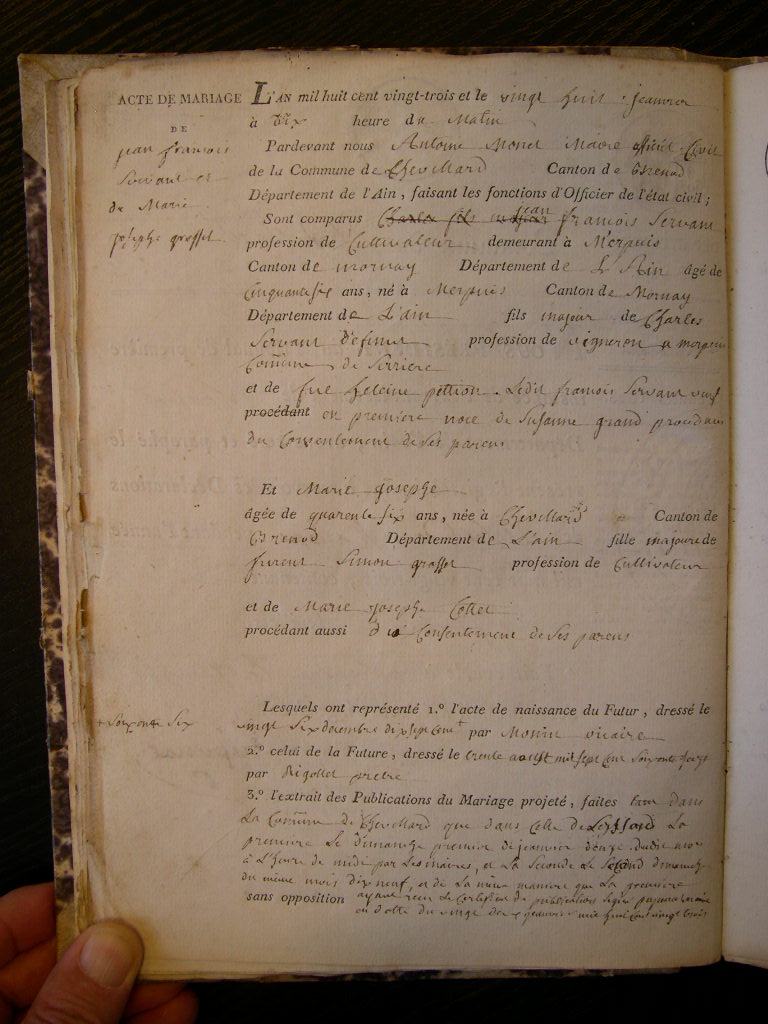 ACTE DE MARIAGE
DE
jean francois
Servant et
de Marie
josephe grosset
L'AN mil huit cent vingt-trois et le vingt huit jeanvier
à Dix heure du Matin
Pardevant nous Antoine Monet Maire officié Civil
de la Commune de Chevillard Canton de Brenod
Département de l'Ain, faisant les fonctions d'Officier de l'état civil;
Sont comparus Charles fils jean francois Servant
profession de Cultivateur demeurant à Merpuis
Canton de mornay Département de L'Ain âgé de
Cinquante six ans, né à Merpuis Canton de Mornay
Département de L'ain fils majeur de Charles
Servant Défunt profession de vigneron a merpuis
Commune de Serriere
et de feue heleine pettion. Ledit francois Servant veuf
procédant en premiere noce de Susanne grand procedant
du Consentement de Ses parens
Et Marie Josephe
âgée de quarente six ans, née à Chevillard Canton de
Brenod Département de L'ain fille majeure de
furent Simon grosset profession de Cultivateur
et de Marie josephe Collet
procédant aussi du Consentement de Ses parens
Lesquels ont représenté 1.º l'acte de naissance du Futur, dressé le
+ Soixante Six
vingt Six decembre dix sept cent + par Monin vicaire
2.º celui de la Future, dressé le trente aoust mil sept cent Soixante
par Rigollet pretre
3.º l'extrait des Publications du Mariage projeté, faites tant dans
La Commune de Chevillard que dans Celle de La
premiere Le Dimanche premiere de jeanvier Douze dudit mois
à L'heure de midi par Les maires, et La Seconde Le Second dimanche
du même mois Dix neuf, et de La même maniere que La premiere
sans opposition ayant recu Le Certificat de publication Signé
en datte du vingt Jeanvier mil huit cent vingt trois